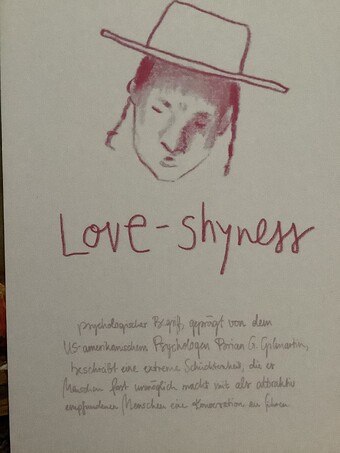 Love-shyness
psychologischer Begriff, geprägt von dem
US-amerikanischen Psychologen Brian G. Gilmartin,
beschreibt eine extreme Schüchternheit, die es
Menschen fast unmöglich macht mit als attraktiv
empfundenen Menschen eine Konversation zu führen.